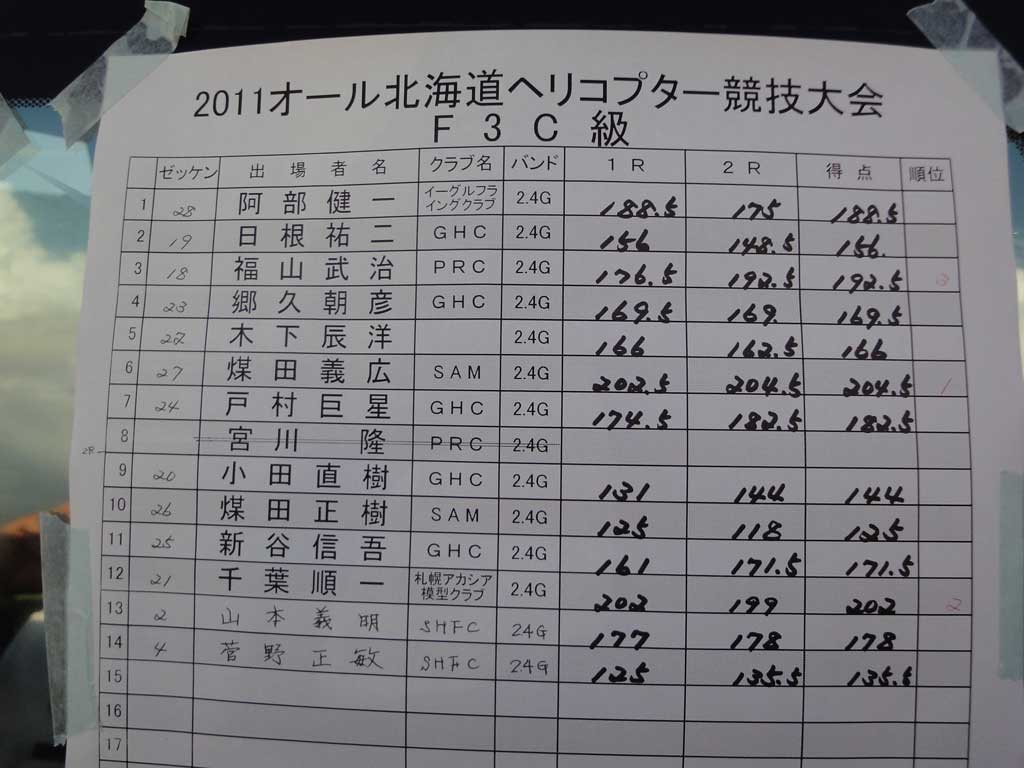 2011オール北海道ヘリコプター競技大会
F 3 C 級
ゼッケン 出場者名 クラブ名 バンド 1R 2R 得点 順位
1 28 阿部健一 イーグルフライングクラブ 2.4G 188.5 175 188.5
2 19 日根祐二 GHC 2.4G 156 148.5 156.
3 18 福山武治 PRC 2.4G 176.5 192.5 192.5 3
4 23 郷久朝彦 GHC 2.4G 169.5 169. 169.5
5 22 木下辰洋 2.4G 166 162.5 166
6 27 煤田義広 SAM 2.4G 202.5 204.5 204.5 1
7 24 戸村巨星 GHC 2.4G 174.5 182.5 182.5
8 宮川 隆 PRC 2.4G
9 20 小田直樹 GHC 2.4G 131 144 144
10 26 煤田正樹 SAM 2.4G 125 118 125
11 25 新谷信吾 GHC 2.4G 161 171.5 171.5
12 21 千葉順一 札幌アカシア模型クラブ 2.4G 202 199 202 2
13 2 山本義明 SHFC 24G 177 178 178
14 4 菅野正敏 SHFC 2.4G 125 135.5 135.5
15
16
17